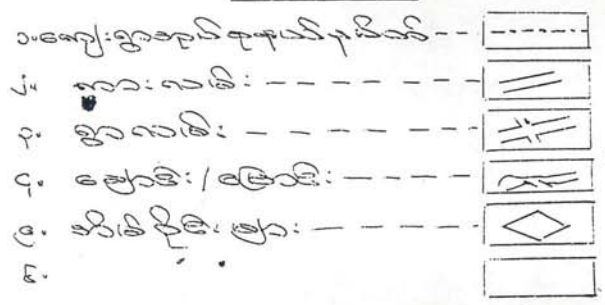 ၁။ကျေးရွာအုပ်စုနယ်နမိတ်
၂။ ကားလမ်း
၃။ ရွာလမ်း
၄။ ချောင်း/မြောင်း
၅။ အိမ်ဝိုင်းများ
၆။